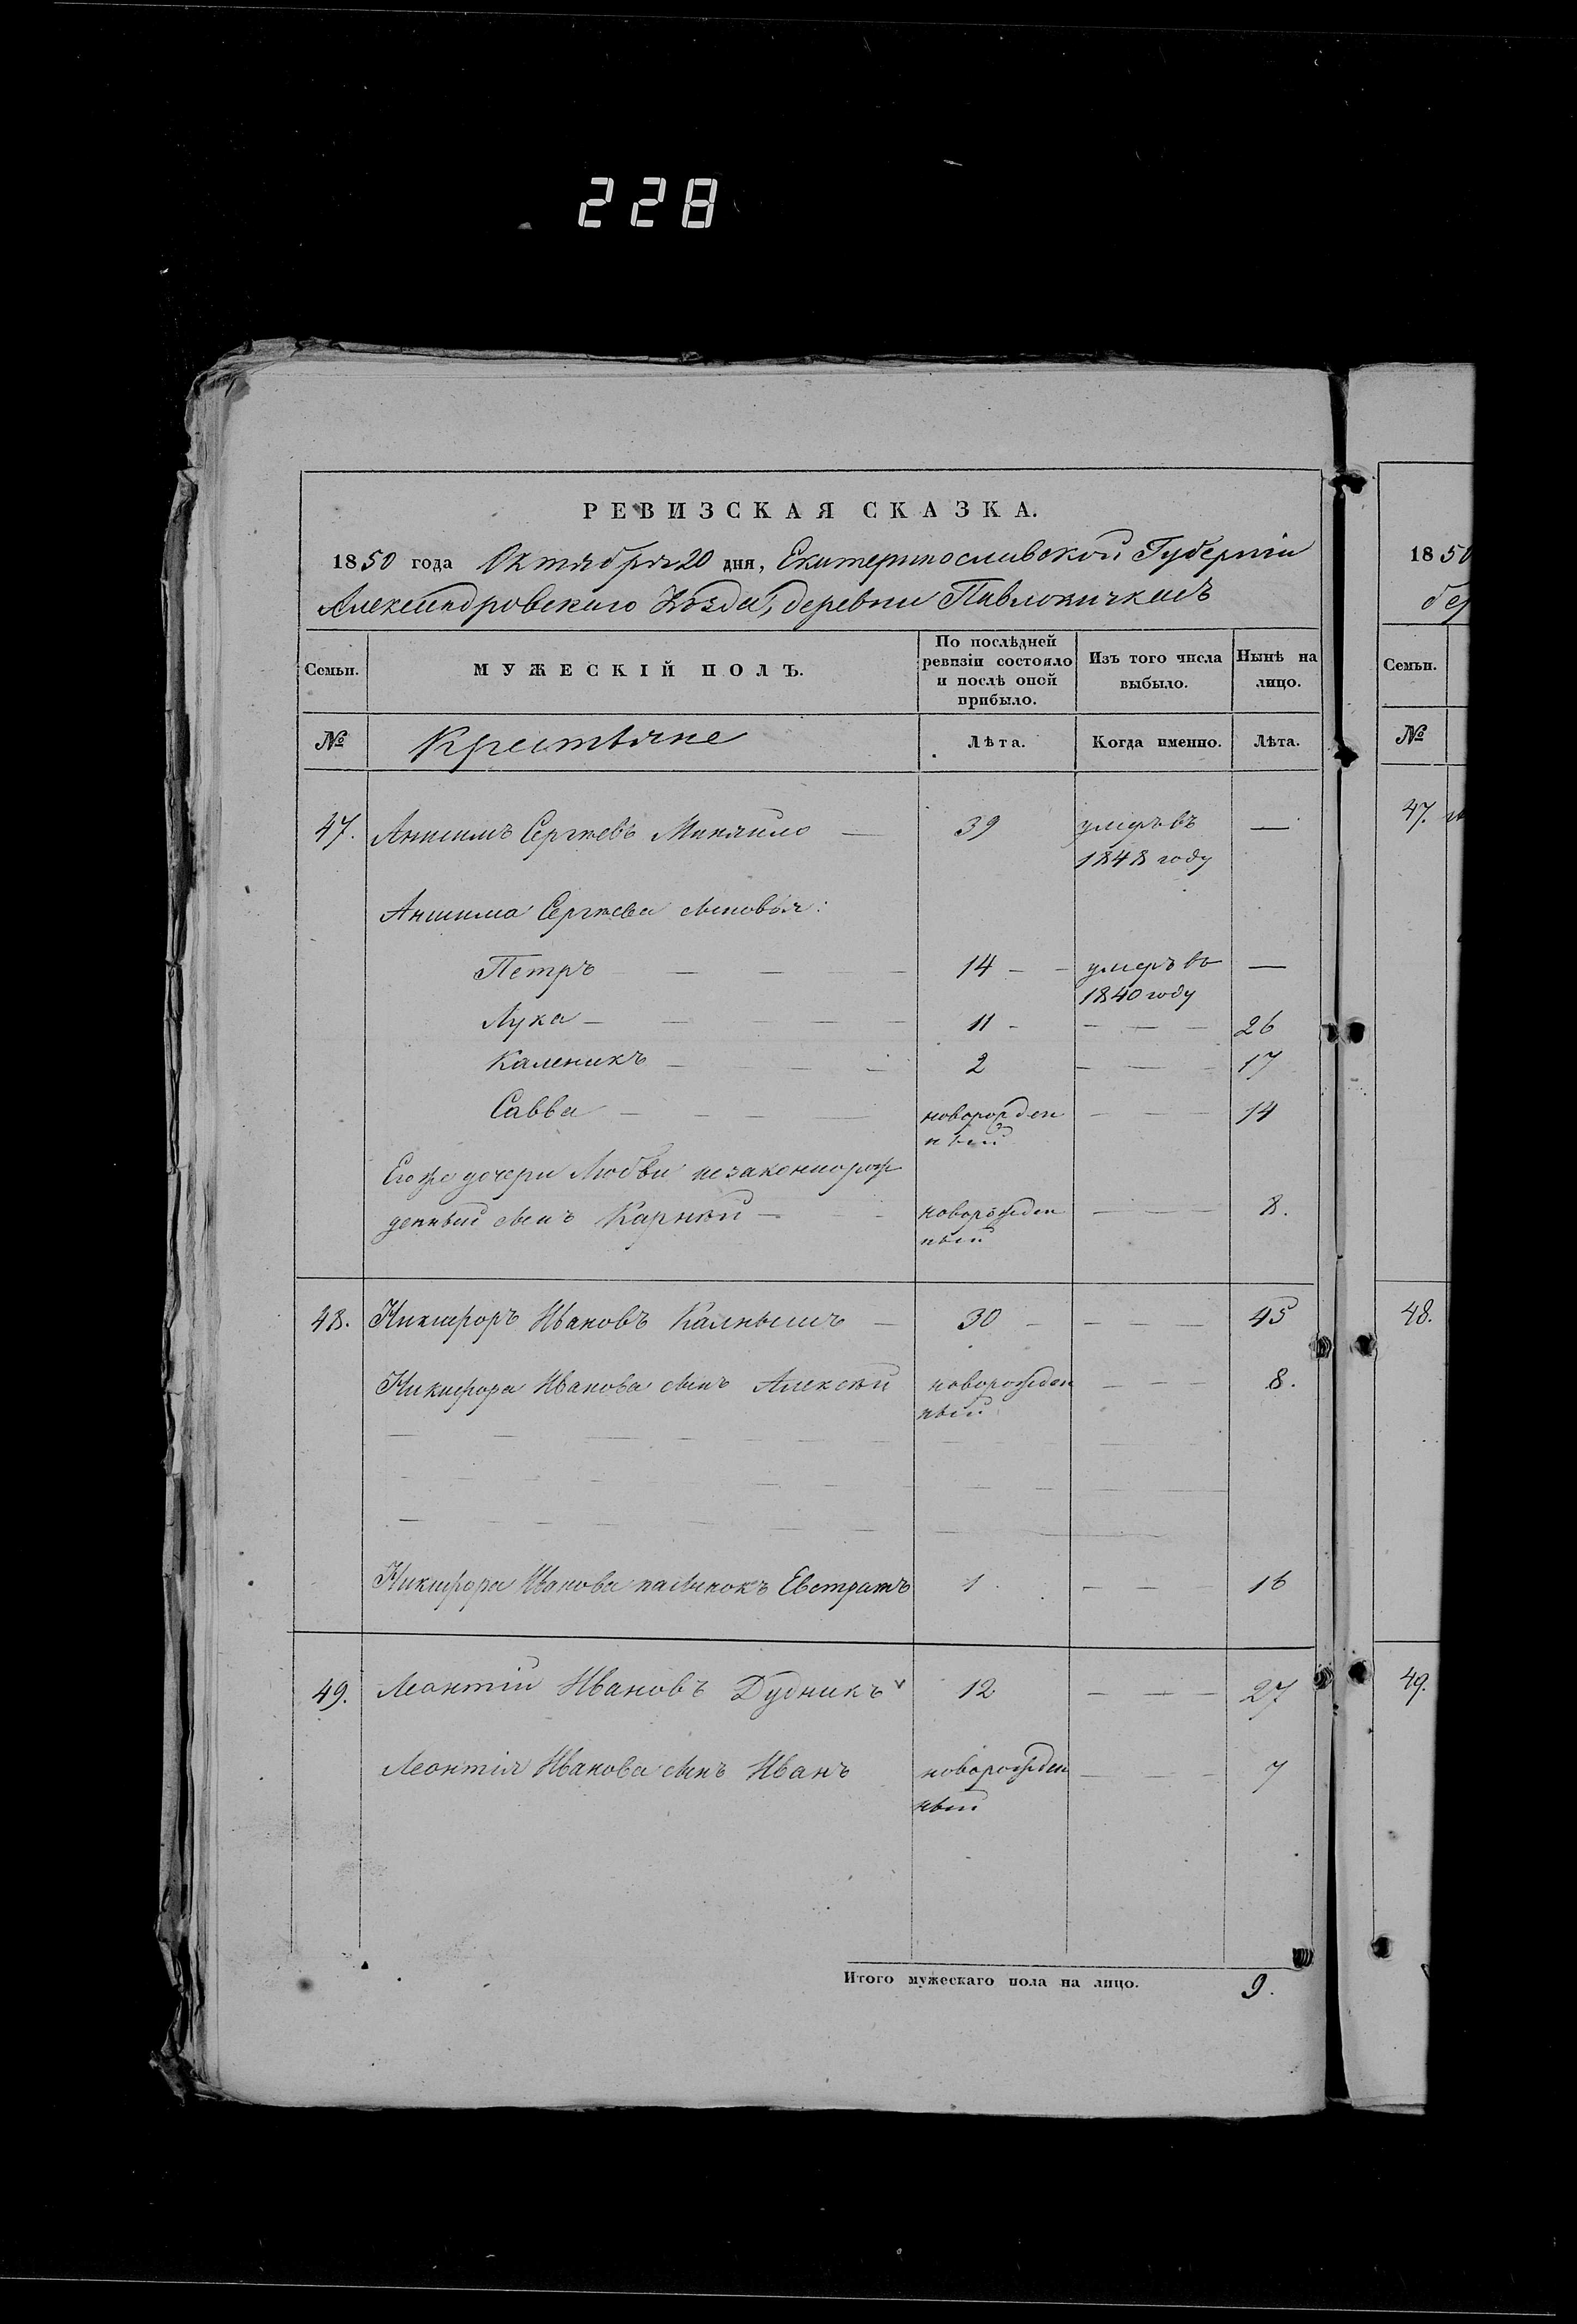 228
РЕВИЗСКАЯ СКАЗКА.
1850 года Октября 20 дня, Екатеринославской Губерніи
Александровскаго Уѣзда, деревни Павлокичкасъ
Семьи. МУЖЕСКІЙ ПОЛЪ. По послѣдней ревизіи состояло и послѣ оной прибыло. Изъ того числа выбыло. Нынѣ на лицо.
№ Крестьяне Лѣта. Когда именно. Лѣта.
47. Анисимъ Сергѣевъ 39 умеръ въ —
1848 году
Анисима Сергѣева сыновья:
Петръ 14 умеръ въ —
1840 году
Лука 11 26
Каленикъ 2 17
Савва новорожден 14
ный
Его же дочери Любви незаконнорож
денный сынъ Карпѣй новорожден 8.
ный
48. Никифоръ Ивановъ Калнышъ 30 45
Никифора Иванова сынъ Алексѣй новорожден 8.
ный
Никифора Иванова пасынокъ Евстратъ 1 16
49. Леонтій Ивановъ Дудникъ 12 27
Леонтія Иванова сынъ Иванъ новорожден 7
ный
Итого мужескаго пола на лицо. 9.
1850
Семьи.
№
47.
48.
49.